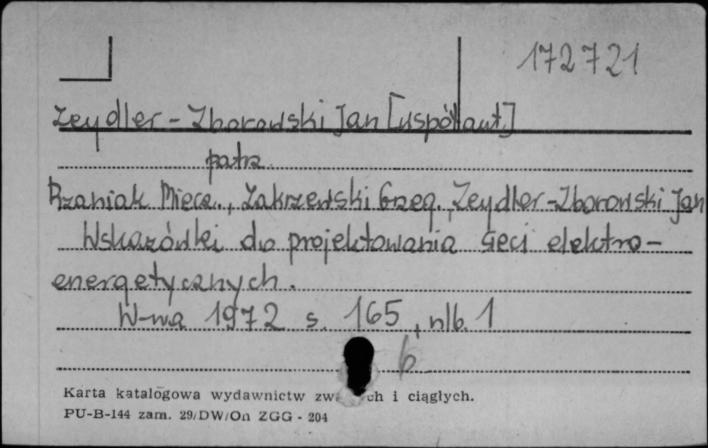 172721
Zeydler-Zborowski Jan [współaut.]
patrz
Rzaniak Miecz., Zakrzewski Grzeg., Zeydler-Zborowski Jan
Wskazówki do projektowania sieci elektro-
energetycznych.
W-wa 1972 s. 165, nlb. 1
6
Karta katalogowa wydawnictw zw ch i ciągłych.
PU-B-144 zam. 29/DW/On ZGG - 204